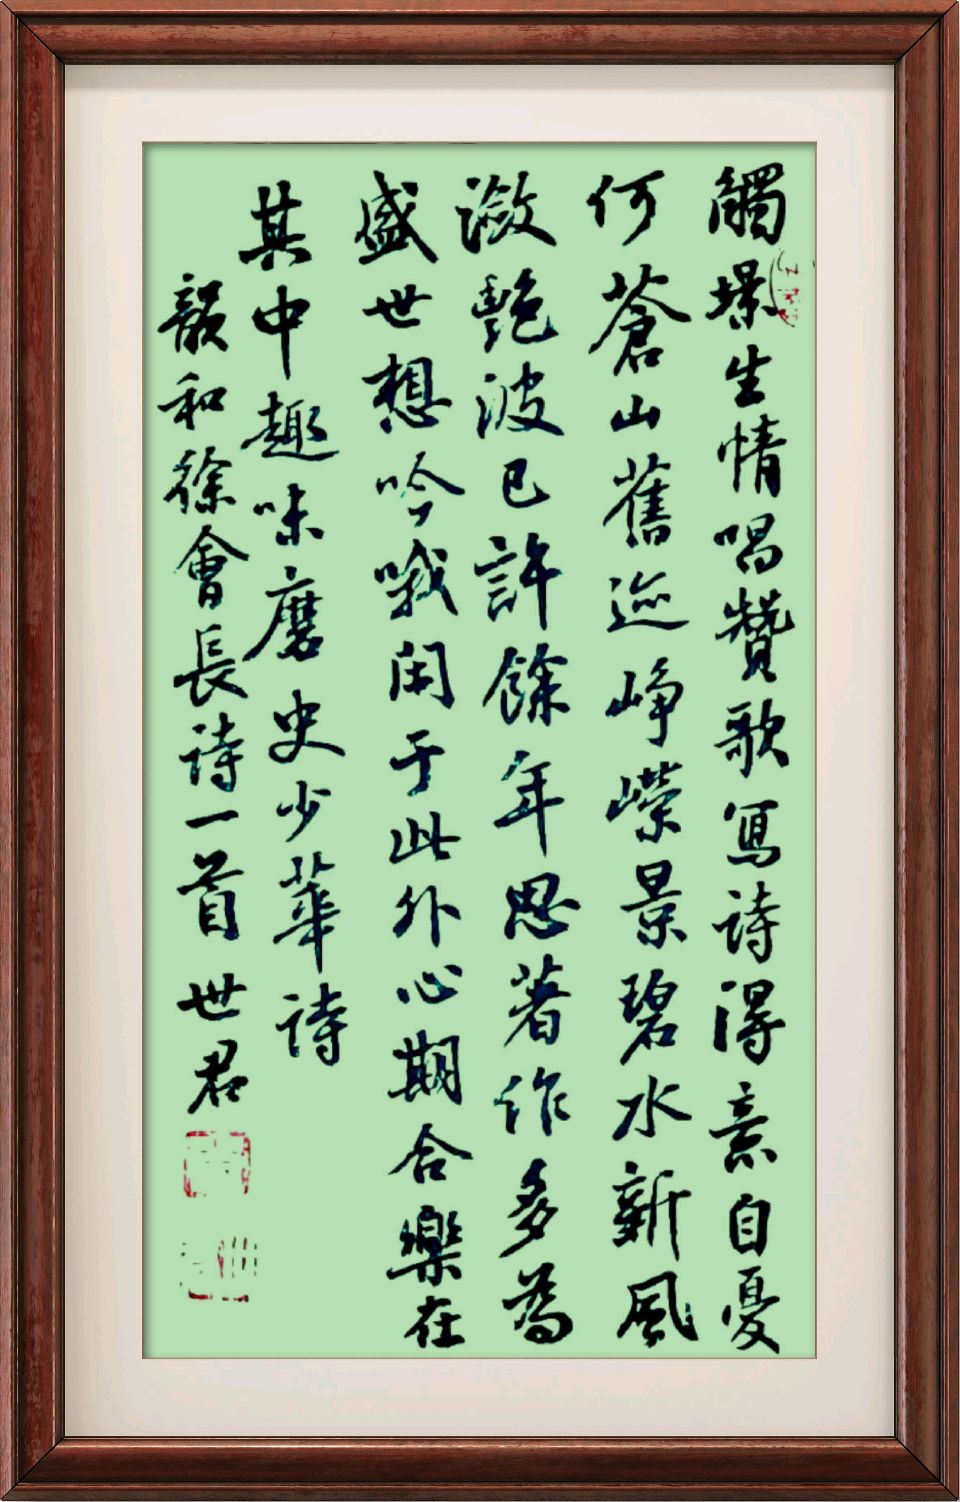 觸景生情唱贊歌寫詩得意自憂
何蒼山舊迹崢嶸景碧水新風
瀲艷波已許餘年思著作多為
盛世想吟哦閑于此外心期合樂在
其中趣味麽史少華詩
韻和徐會長詩一首世君